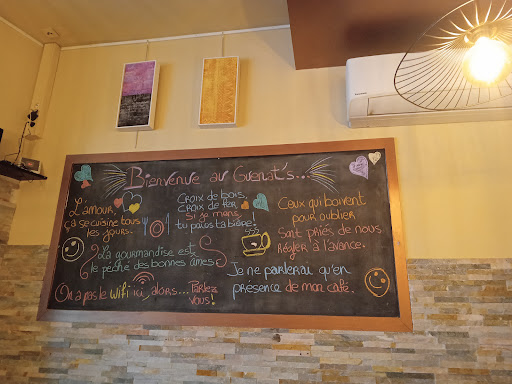 Bienvenue au Guenat's...
L'amour,
ça se cuisine tous
les jours.
Croix de bois,
Croix de fer
Si je mens,
tu paies ta bière!
Ceux qui boivent
pour oublier
Sont priés de nous
Régler à l'avance.
La gourmandise est
le péché des bonnes âmes
Je ne parlerai qu'en
présence de mon café.
On a pas le Wifi ici, alors... Parlez
vous!